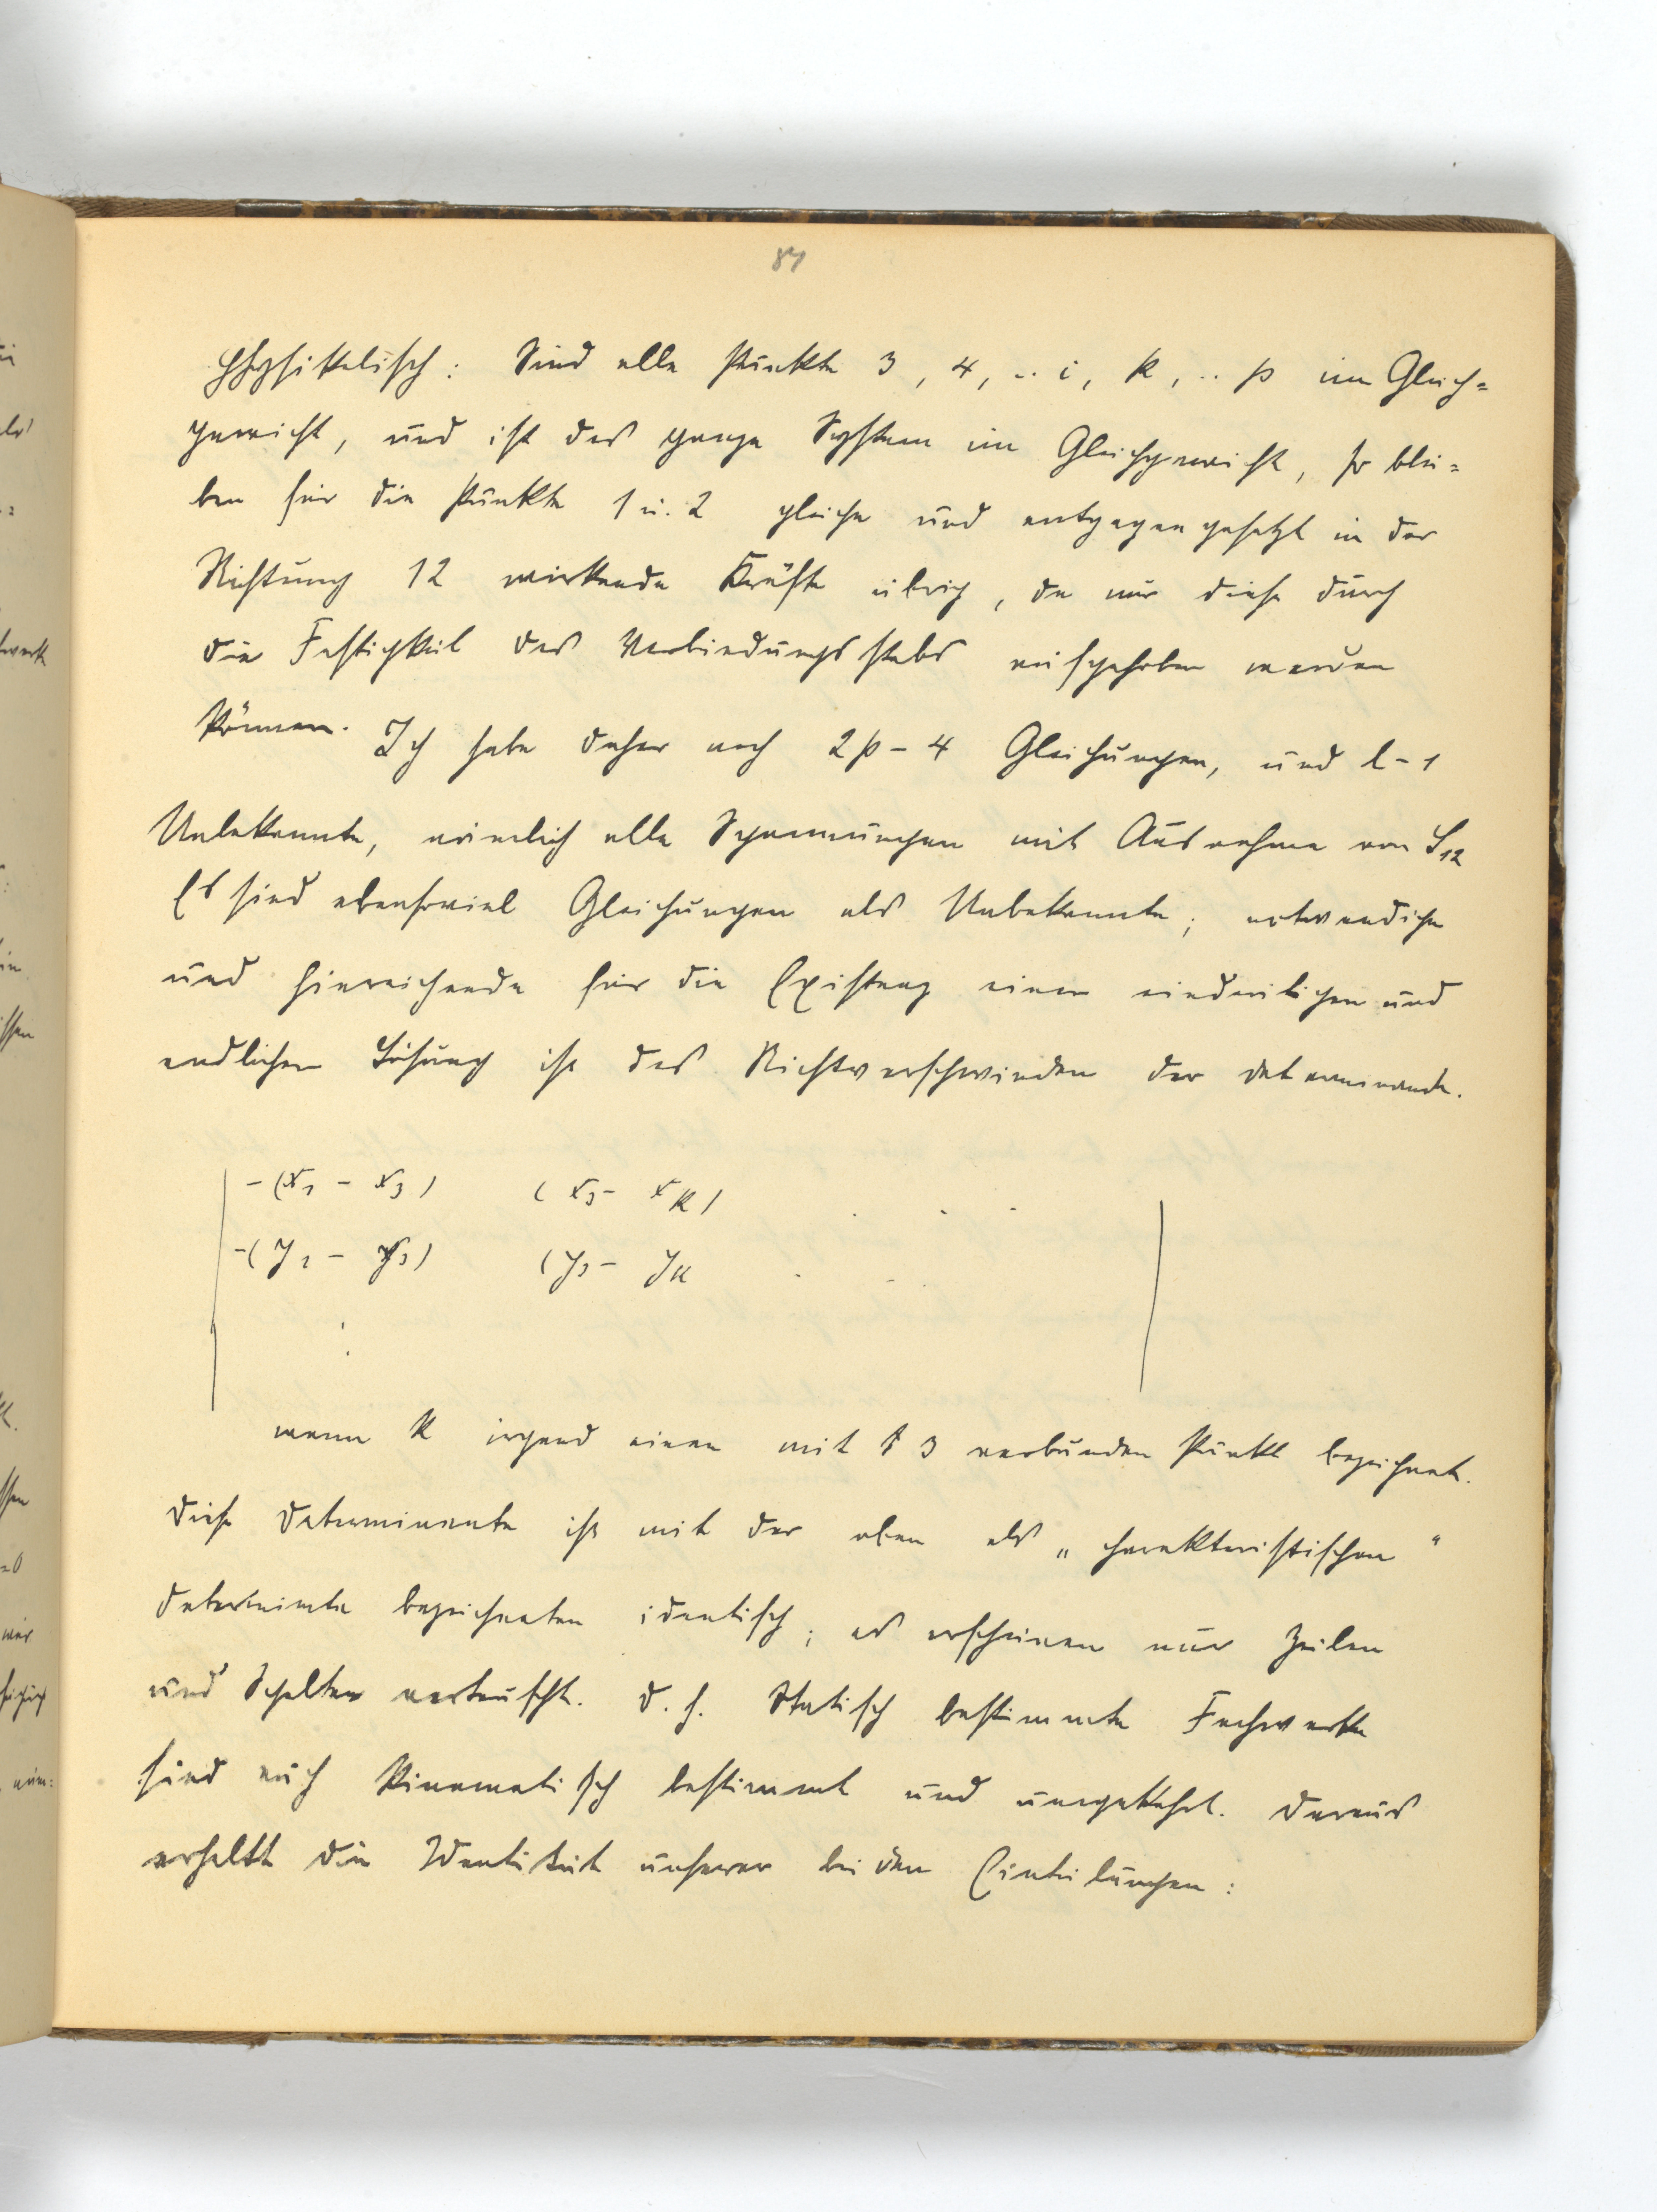 87
Physikalisch: Sind alle Punkte 3, 4, .. i, k, .. p im Gleich=
gewicht, und ist das ganze System im Gleichgewicht, so blei=
ben für die Punkte 1 u. 2 gleiche und entgegengesetzt in der
Richtung 12 wirkende Kräfte übrig, da nur diese durch
die Festigkeit des Verbindungsstabs aufgehoben werden
können. Ich habe daher noch 2p - 4 Gleichungen, und l - 1
Unbekannte, nämlich alle Spannungen mit Ausnahme von S12
Es sind ebensoviel Gleichungen als Unbekannte; notwendige
und hinreichende für die Existenz einer eindeutigen und
endlichen Lösung ist das Nichtverschwinden der Determinante.
-(x1 - x3) (x3 - xk) . . .
-(y1 - y3) (y3 - yk . . .
wenn k irgend einen mit 3 verbunden Punkt bezeichnet.
Diese Determinante ist mit der oben als „charakteristischen“
Determinte bezeichneten identisch; es erscheinen nur Zeilen
und Spalten vertauscht. D. h. Statisch bestimmte Fachwerke
sind auch kinematisch bestimmt und umgekehrt. Daraus
erhellt die Identität unserer beiden Einteilungen: